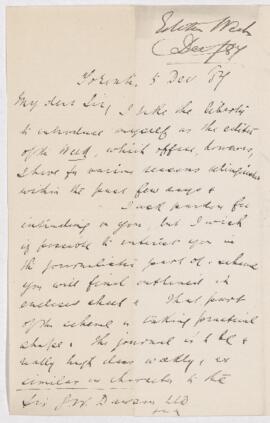 Editor Week
Dec /87
Toronto 5 Dec 87
My dear Sir, I take the liberty
to introduce myself as the editor
of the Week, which office, however,
I have for various reasons relinquished
within the past few days &
I ask pardon for
intruding on you, but I wish
if possible to interest you in
the journalistic part of a scheme
you will find outlined in
enclosed sheet & That part
of the scheme is taking practical
shape & The journal is to be a
really high class weekly, as
similar in character to the
Sir J W Dawson LLD